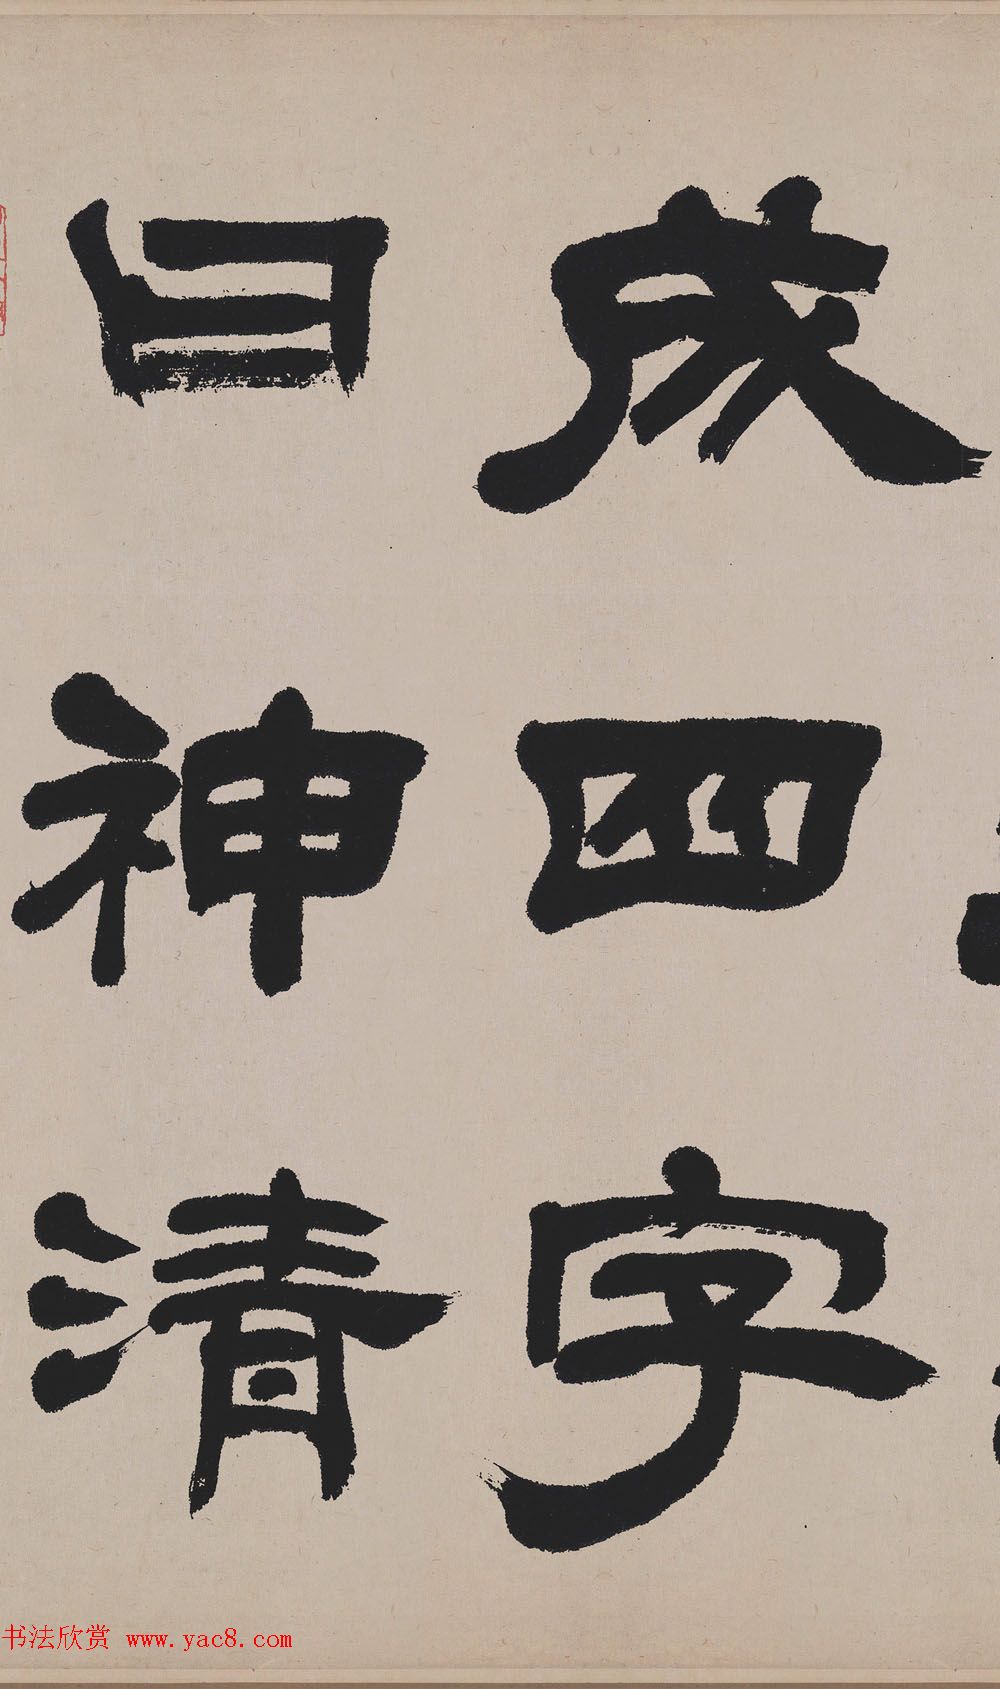 成四字
曰神清
书法欣赏 www.yac8.com